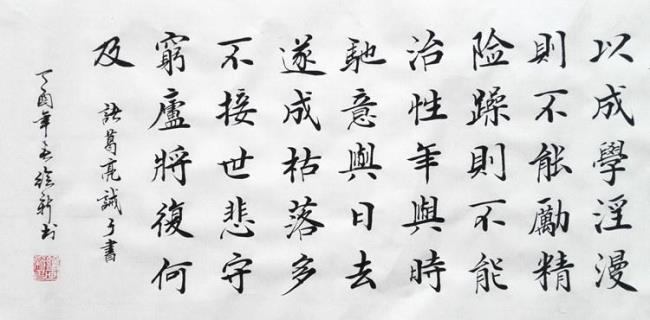 以成學淫漫
則不能勵精
险躁則不能
治性年與時
馳意與日去
遂成枯落多
不接世悲守
窮廬將復何
及
諸葛亮誡子書
丁酉年春徐新书